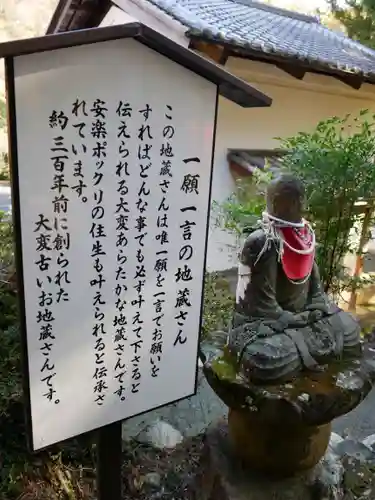 一願一言の地蔵さん
この地蔵さんは唯一願を
すれば一言でお願いを
すればどんな事でも必ず叶えて下さると
伝えられる大変あらたかな地蔵さんです。
安楽ポックリの往生も叶えられると伝承さ
れています。
約三百年前に創られた
大変古いお地蔵さんです。